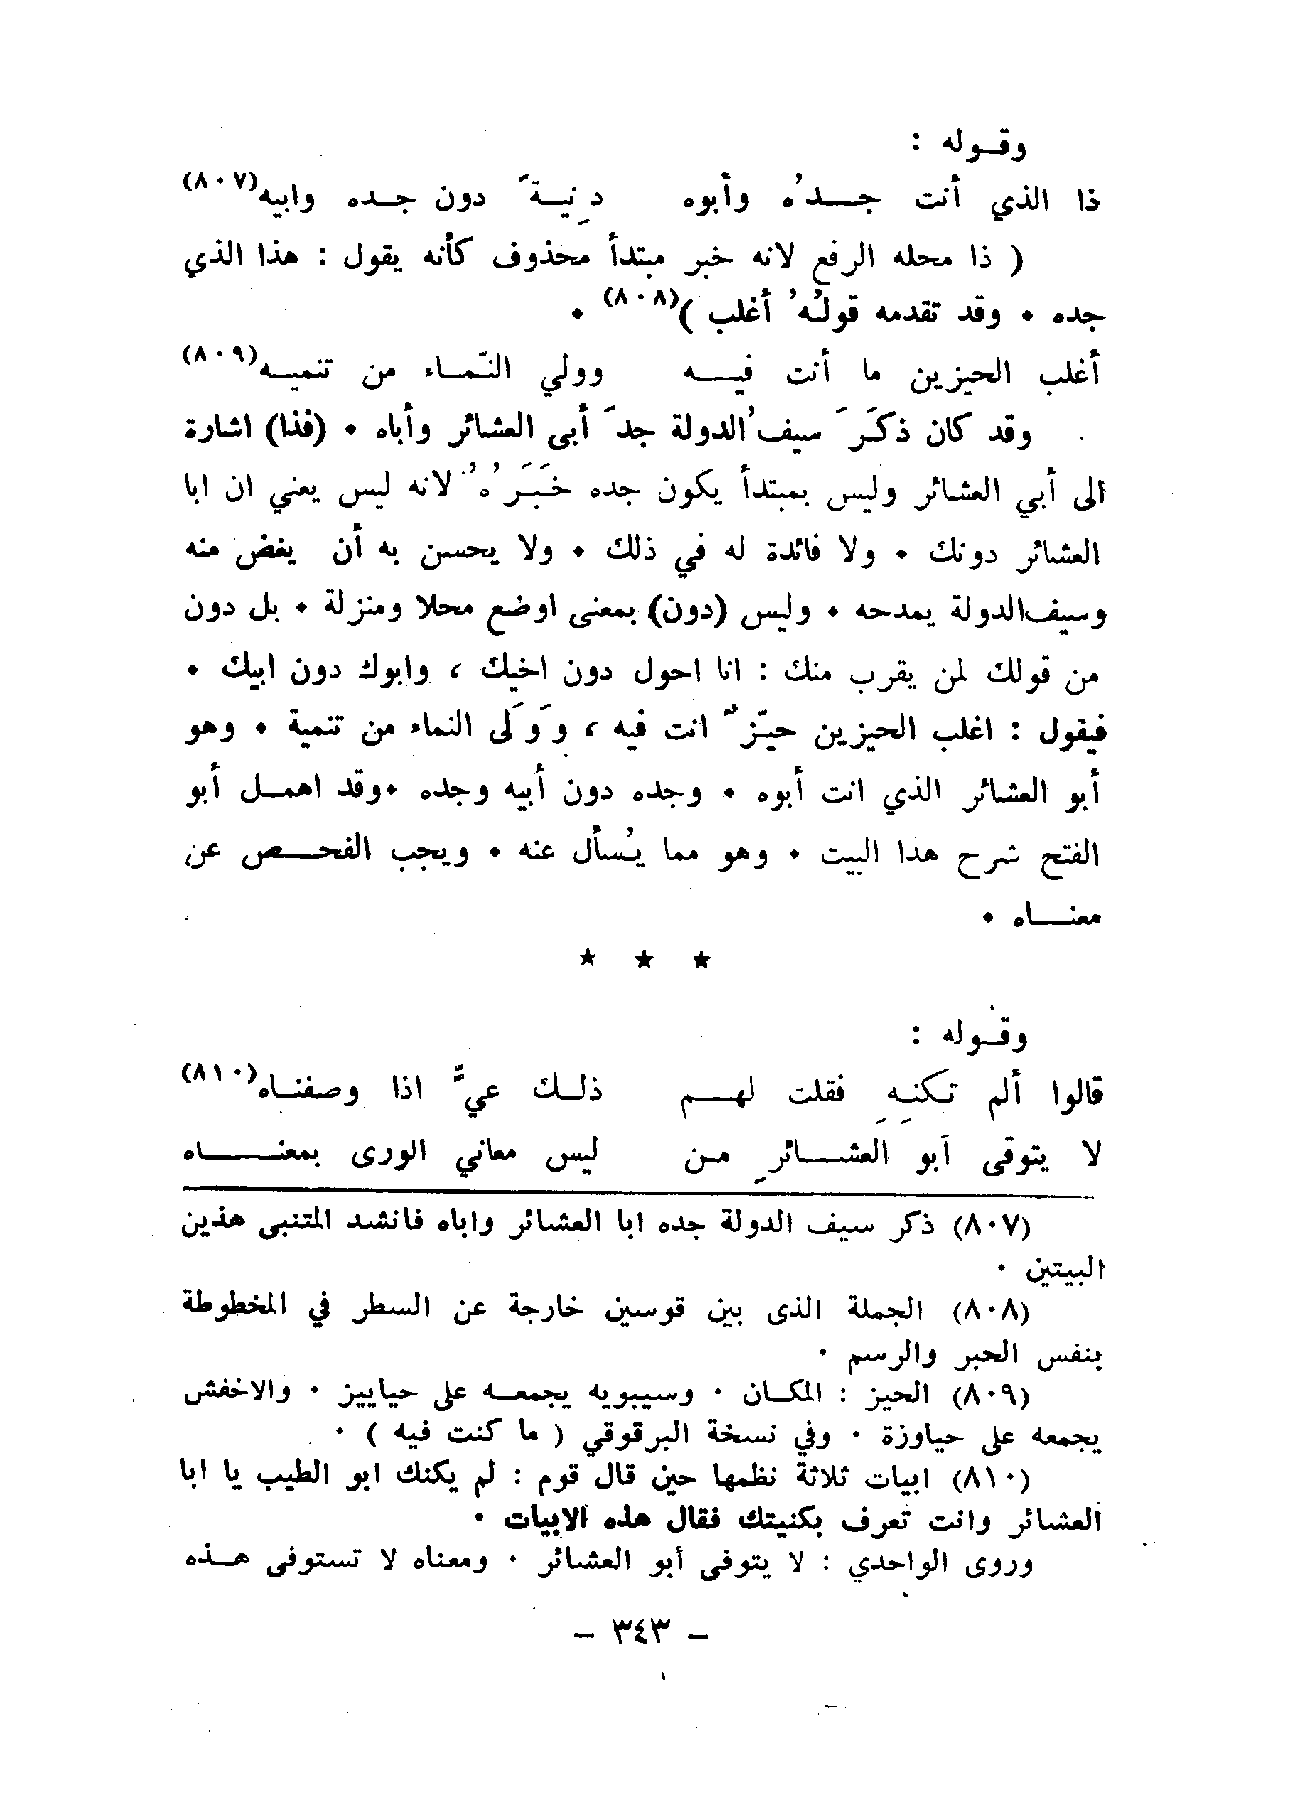 وقـوله :
ذا الذي أنت جـــدُه وأبوه دِنيـةً دون جـده وابيه(٨٠٧)
( ذا محله الرفع لانه خبر مبتدأ محذوف كأنه يقول : هذا الذي
جده • وقد تقدمه قولُهُ أغلب )(٨٠٨) •
أغلب الحيزين ما أنت فيـــه وولي النّمـاء من تنميـه(٨٠٩)
وقد كان ذكَرَ سيفُ الدولة جدَ أبي العشائر وأباه • (فذا) اشارة
الى أبي العشائر وليس بمبتدأ يكون جده خَبَرُهُ لانه ليس يعني ان ابا
العشائر دونك • ولا فائدة له في ذلك • ولا يحسن به أن يغض منه
وسيف الدولة يمدحه • وليس (دون) بمعنى اوضع محلا ومنزلة • بل دون
من قولك لمن يقرب منك : انا احول دون اخيك ، وابوك دون ابيك •
فيقول : اغلب الحيزين حيّزٌ انت فيه ، وَوَلى النماء من تنمية • وهو
أبو العشائر الذي انت أبوه • وجده دون أبيه وجده •وقد اهمـل أبو
الفتح شرح هذا البيت • وهو مما يُسأل عنه • ويجب الفحـــص عن
معنـــاه •
★ ★ ★
وقـوله :
قالوا ألم تكنِهِ فقلت لهـــم ذلـك عيٌّ اذا وصفنـاه(٨١٠)
لا يتوفى أبو العشـــائرِ مـن ليس معاني الورى بمعنـــــاه
(٨٠٧) ذكر سيف الدولة جده ابا العشائر واباه فانشد المتنبي هذين
البيتين •
(٨٠٨) الجملة الذى بين قوسين خارجة عن السطر في المخطوطة
بنفس الحبر والرسم •
(٨٠٩) الحيز : المكـان • وسيبويه يجمعـه على حياييز • والاخفش
يجمعه على حياوزة • وفي نسخة البرقوقي ( ما كنت فيه ) •
(٨١٠) ابيات ثلاثة نظمها حين قال قوم : لم يكنك ابو الطيب يا ابا
العشائر وانت تعرف بكنيتك فقال هذه الابيات •
وروى الواحدي : لا يتوفى أبو العشائر • ومعناه لا تستوفى هـذه
– ٣٤٣ –